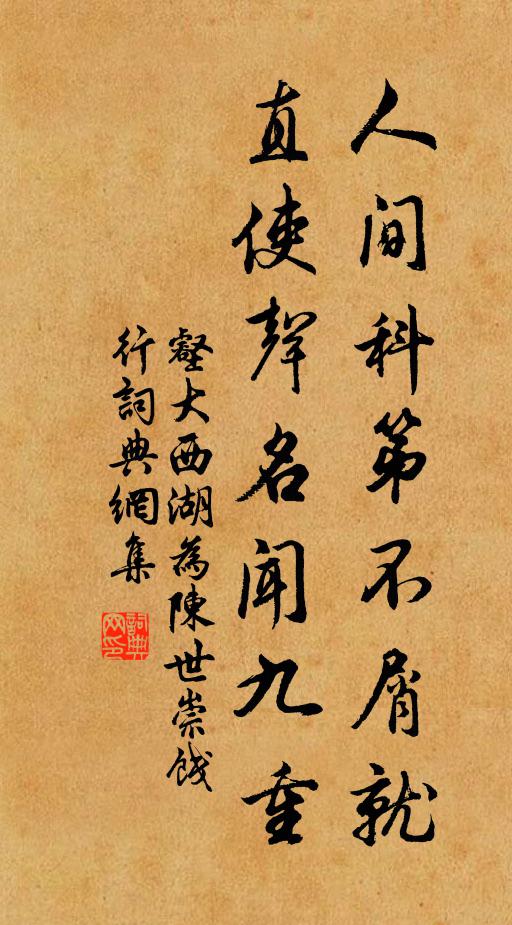 人間科第不屑就
直使聲名聞九重
壑大西湖為陳世崇餞
行詞典網集
詞典網印